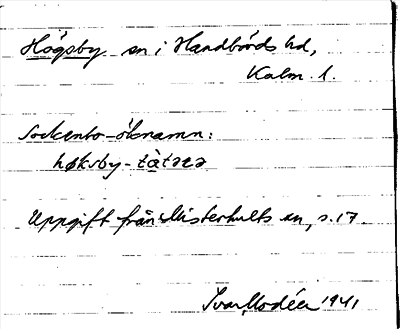 Högsby sn i Handbörds hd,
Kalm. l.
Sockenbo-öknamn:
høksby-tàtrar
Uppgift från Misterhults sn, s. 17.
Ivar Modéer 1941